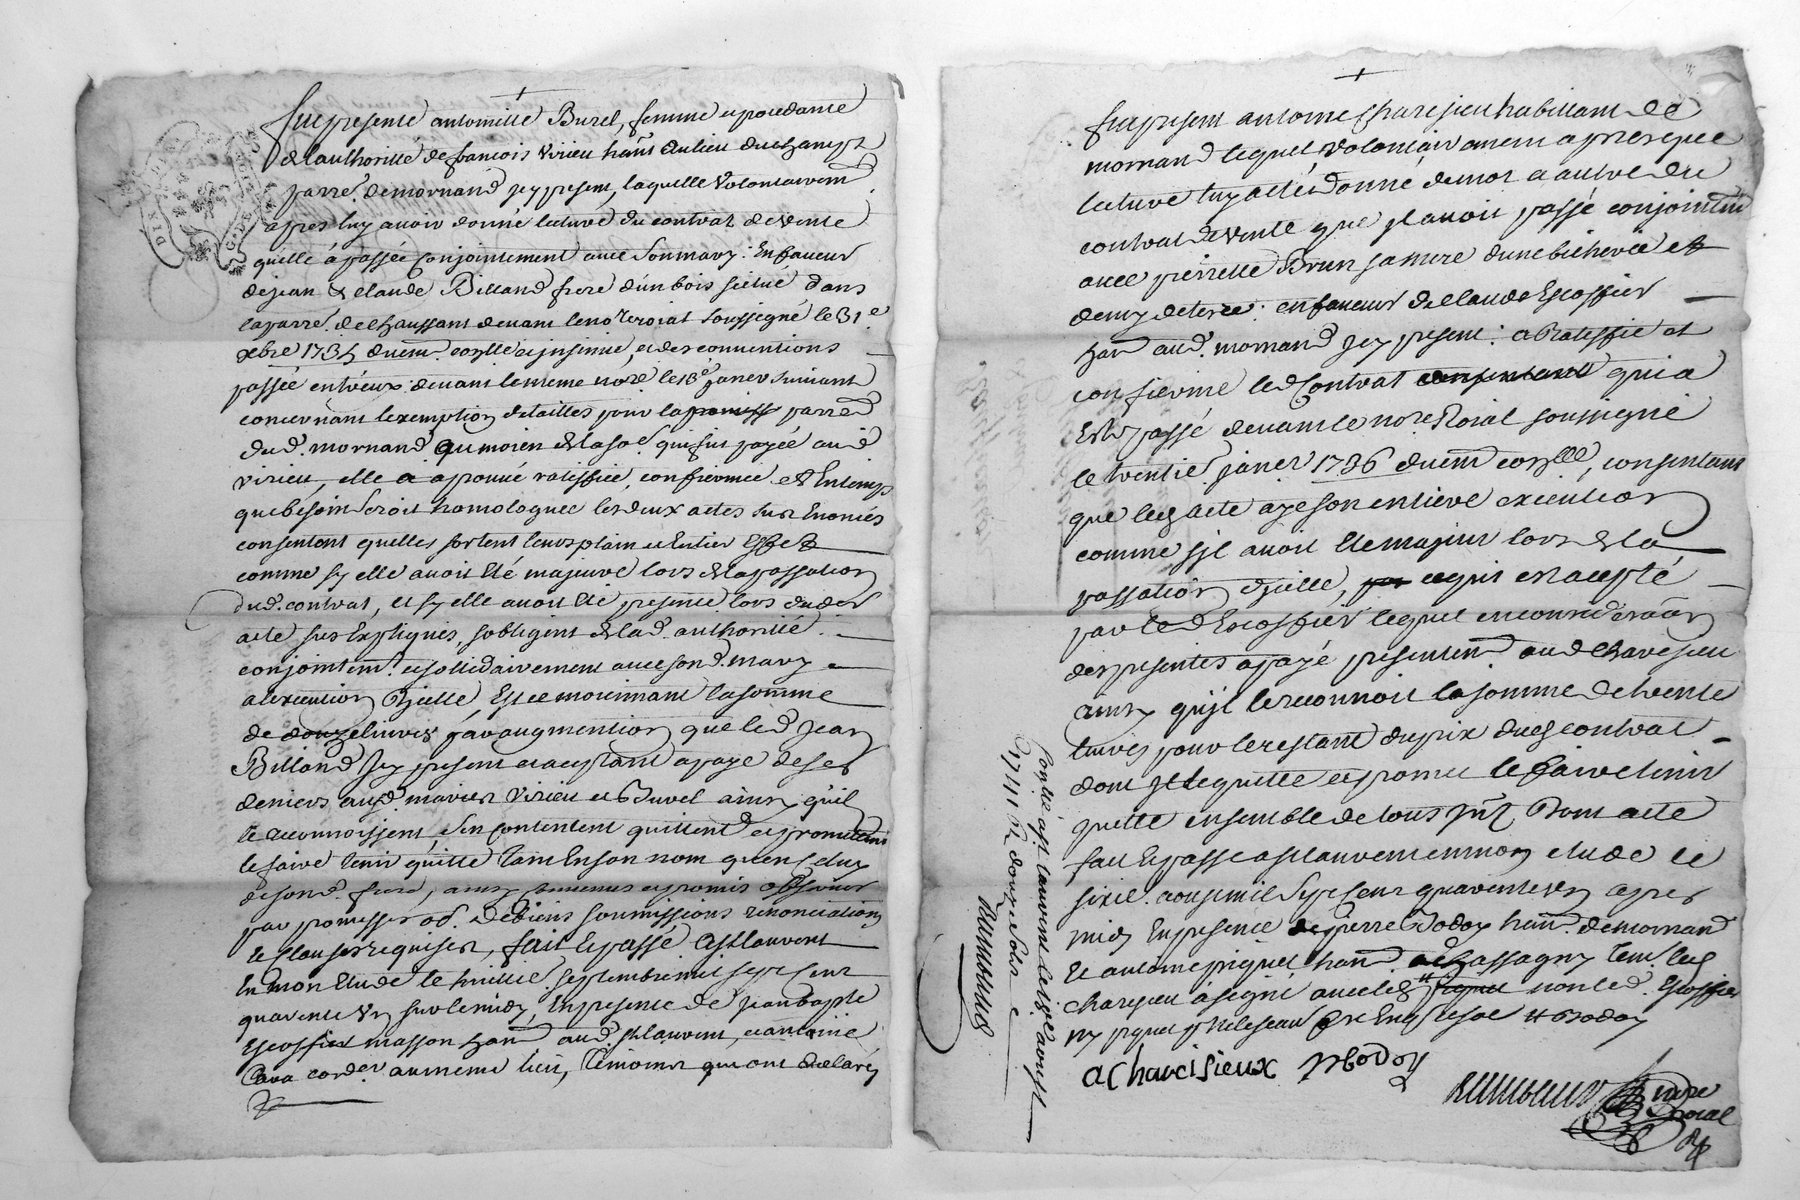 fut presente antoinette Burel, femme et poudante
de lauthoritté de francois Virieu hant au lieu duchamp
parre. de mornand jcy present, laquelle volontairemt
apres luy avoir donné lecture du contrat de vente
quelle á passée conjointement avec son mary: En faveur
de jean & claude Billand frere d'un bois scitué dans
la parre. de chaussant devant le nore roial soussigné le 31e
xbre 1735 duemt. conllé et jnsinué, et des conventions
passée entreux devant le meme nore. le 18e janer suivant
concernant lexemption de tailles pour la parre
dud. mornand au moien de la so.e qui fut payée aud
virieu, elle a aprouvé ratiffiée, confirmée et En temps
que besoin seroit homologuée les deux actes sus Enoncés
consentant quelles sortent leurs plain et Entier Effet
comme sy elle avoit été majeure lors de la passation
dud. contrat, et sy elle avoit été presente lors dudit
acte sus Expliqués, sobligent de lad. authoritté
conjointemt. et solidairement avec sond. mary
a lexecution d'jcelle, Et ce moiennant la somme
de douze livres par augmention que led Jean
Billand jcy present et aceptant a payé de ses
deniers auxd. mariés Virieu et Burel ainsy qu'il
le reconnoissent, s'en contentent quittent et promettent
le faire tenir quitte tant En son nom qu'en celuy
de sond. frere, ainsy convenus et promis observer
par promesses obl. de biens soumissions renonciations
et clauses requises, fait et passé a st laurent
En mon Etude le huitie. septembre mil sept cent
quarente Un sur le midy, En presence de Jean baptte
Escoffier masson hant aud. st laurent, et antoine
Cava corder au meme lieu, temoins qui ont declaré
fut present antoine Charesieu habittant de
mornand lequel volontairement apres que
lecture luy a eté donné de mot a autre du
contrat de vente que jl avoit passé conjointemt
avec pierrette Brun sa mere d'une bicherée et
demy de terre: en faveur de Claude Escoffier
hant aud. mornand jcy present: a Ratiffié et
confirmé led Contrat qui a
Eté passé devant le nore Roial soussigné
le trentie. janer 1736 duemt conllé, consentant
que led acte aye son entiere execution
comme s'jl avoit eté majeur lors de la
passation d'jcelle, ce qui est acepté
par led Escoffier lequel en consideration
des presentes a payé presentemt. aud charesieu
ainsy qu'jl le reconnoit la somme de trente
livres pour le restant du prix dud contrat
dont jl le quitte et promet le faire tenir
quitte ensemble de tous jnt. Dont acte
fait et passé a st laurent en mon etude le
sixie. aoust mil sept cent quarente un apres
midy En presence de pierre Boday hant. de mornand
et antoine piquet hant. a chassagny tem. led
charesieu á signé avec led # non led. Escoffier
ny piquet pr ne le scavoir de ce Enqs. # Boday
acharcisieux pboday
nore
Roial
Conllé a st laurent le 12e aoust
1741 R. douze sols